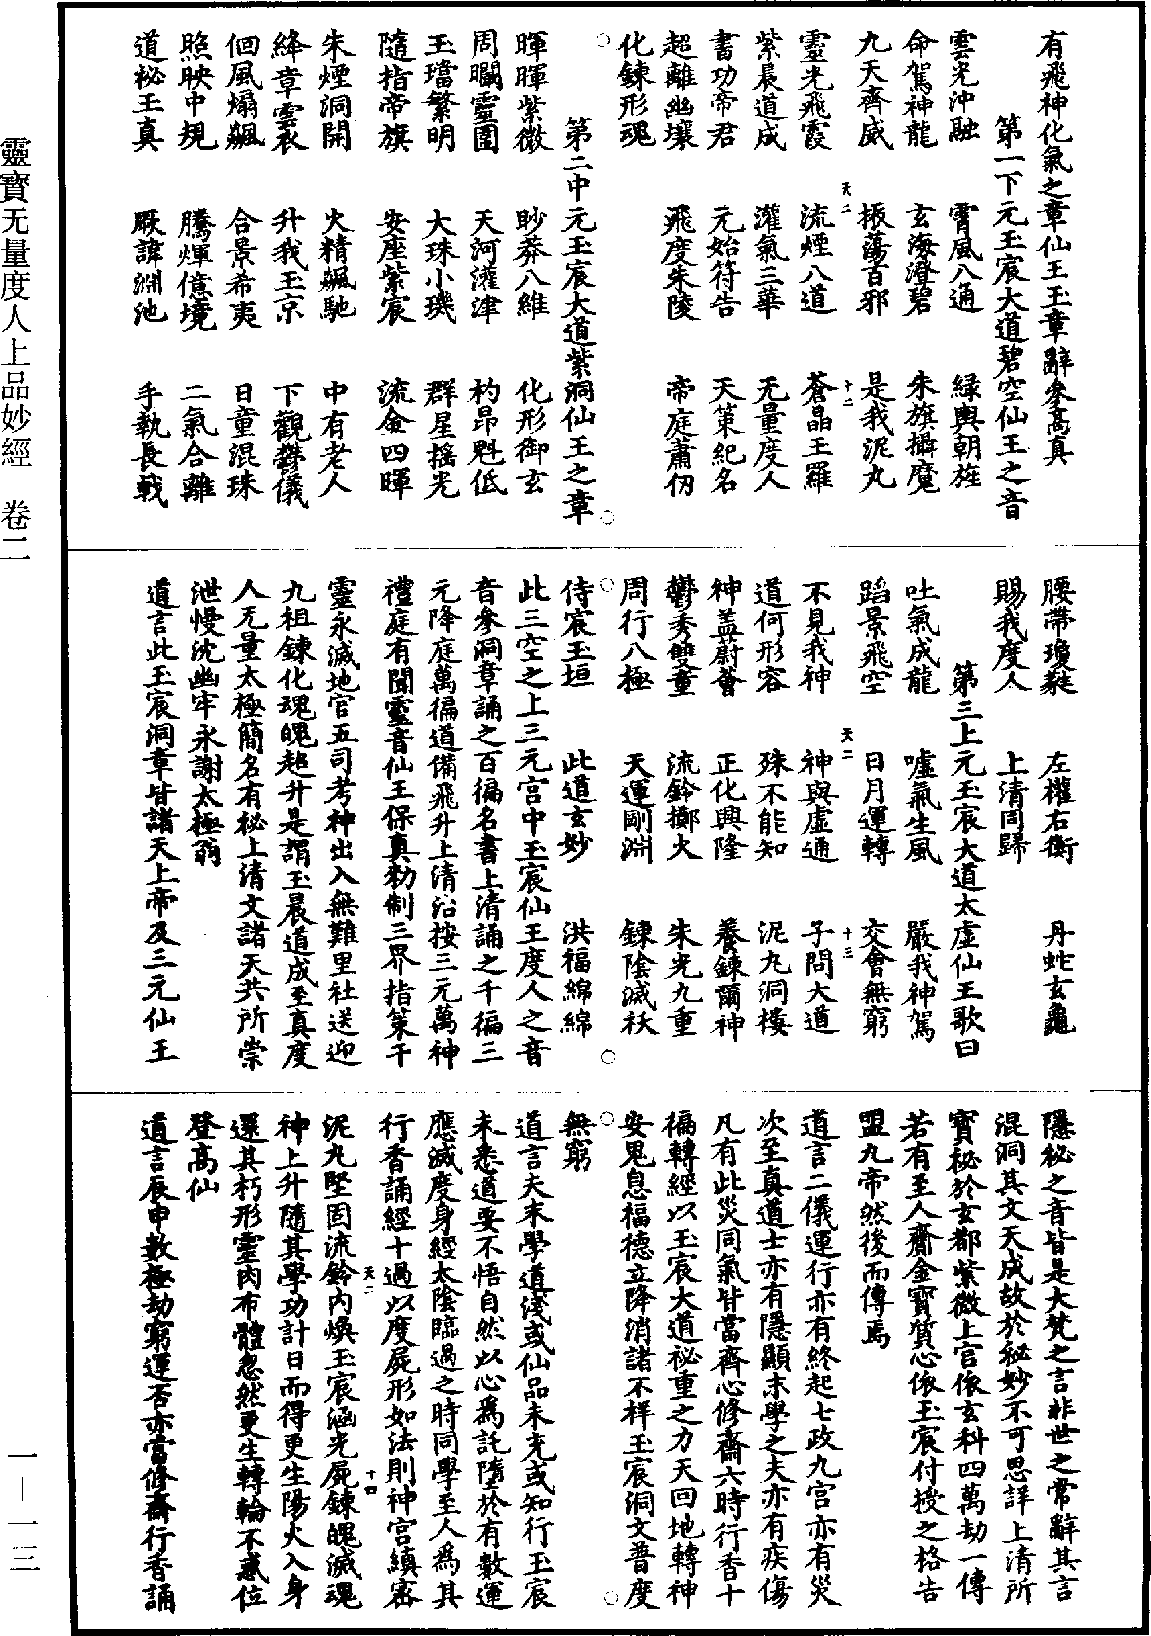 有飛神化氣之章仙王玉章辭參高真
第一下元玉宸大道碧空仙王之音
雲光沖融　霄風八通　緑輿朝旌
命駕神龍　玄海澄碧　朱旗攝魔
九天齊威　振蕩百邪　是我泥丸
天二　十二
靈光飛霞　流煙八道　蒼晶玉羅
紫晨道成　灌氣三華　无量度人
書功帝君　元始符告　天策紀名
超離幽壤　飛度朱陵　帝庭蕭仞
化鍊形魂
第二中元玉宸大道紫洞仙王之章
暉暉紫微　眇莽八維　化形御玄
周矙靈圍　天河灌津　杓昂魁低
玉璫繁明　大珠小璣　群星揺光
隨指帝旗　安座紫宸　流金四暉
朱煙洞開　火精飆馳　中有老人
絳章雲衣　升我玉京　下觀麟儀
佪風煽飆　合景希夷　日童混珠
照映中規　騰煇億境　二氣合離
道祕玉真　厥諱淵池　手執長戟
腰帶瓊蕤　左權右衡　丹蛇玄龜
賜我度人　上清同歸
第三上元玉宸大道太虛仙王歌曰
吐氣成龍　噓氣生風　嚴我神駕
蹈景飛空　日月運轉　交會無窮
天二　十三
不見我神　神與虛通　子問大道
道何形容　殊不能知　泥丸洞樓
神蓋蔚薈　正化興隆　養鍊爾神
鬱秀雙童　流鈴擲火　朱光九重
周行八極　天運剛淵　鍊陰滅祅
侍宸玉垣　此道玄妙　洪福綿綿
此三空之上三元宫中玉宸仙王度人之音
音參洞章誦之百徧名書上清誦之千徧三
元降庭萬徧道備飛升上清治按三元萬神
禮庭有聞靈音仙王保真勑制三界指策千
靈永滅地官五司考神出入無難里社送迎
九祖鍊化魂魄超升是謂玉晨道成至真度
人无量太極簡名有祕上清文諸天共所崇
泄慢沈幽牢永謝太極翁
道言此玉宸洞章皆諸天上帝及三元仙王
隱祕之音皆是大梵之言非世之常辭其言
混洞其文天成故於秘妙不可思詳上清所
寶秘於玄都紫微上宫依玄科四萬劫一傳
若有至人齎金寶質心依玉宸付授之格告
盟九帝然後而傳焉
道言二儀運行亦有終起七政九宫亦有災
次至真道士亦有隱顯末學之夫亦有疾傷
凡有此災同氣皆當齊心修齋六時行香十
徧轉經以玉宸大道祕重之力天回地轉神
安鬼息福德立降消諸不祥玉宸洞文普度
無窮
道言夫末學道淺或仙品未充或知行玉宸
未悉道要不悟自然以心爲託墮於有數運
應滅度身經太陰臨過之時同學至人爲其
行香誦經十過以度屍形如法則神宫縝密
天二　十四
泥丸堅固流鈴内煥玉宸涵光屍鍊魄滅魂
神上升隨其學功計日而得更生陽火入身
還其朽形靈肉布體忽然更生轉輪不惑位
登高仙
道言辰申數極劫窮運否亦當修齋行香誦
靈寶无量度人上品妙經　卷二
一—一三